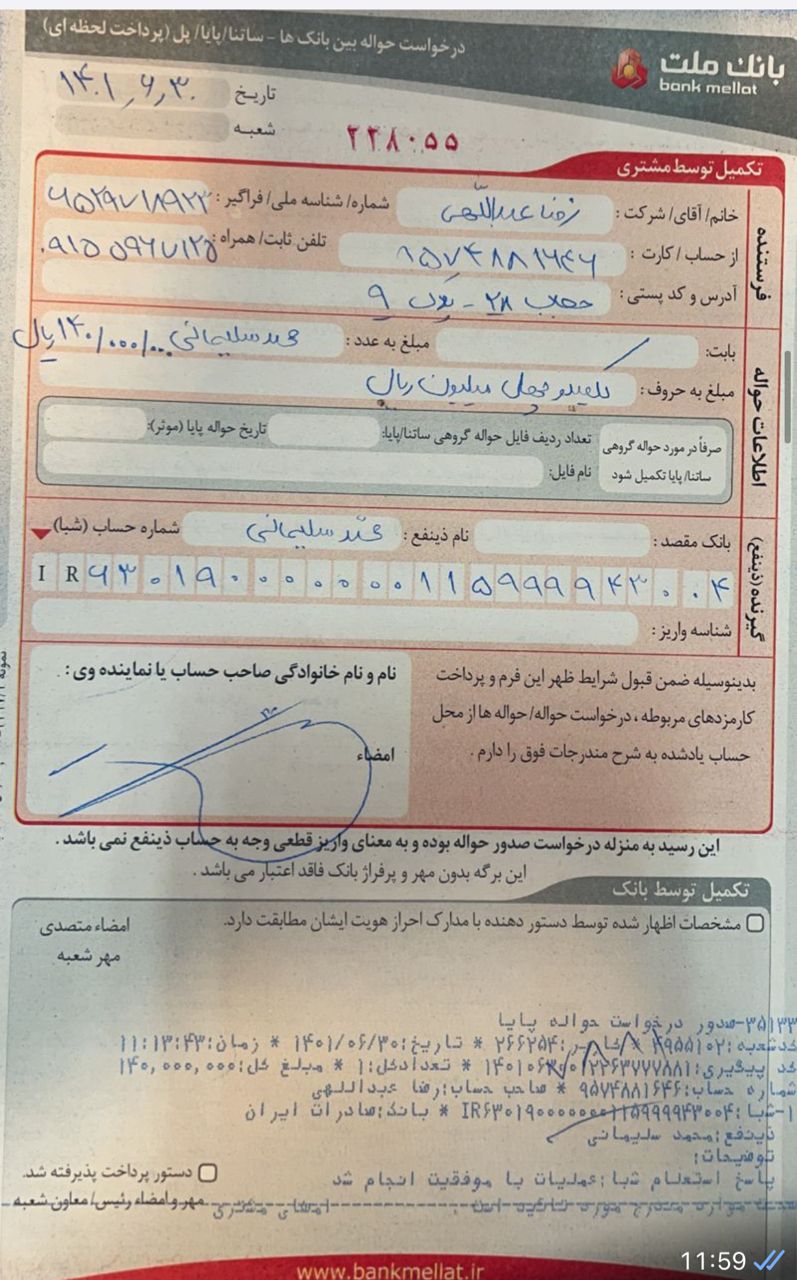 درخواست حواله بین بانک ها - ساتنا/پایا/ پل (پرداخت لحظه ای)
بانک ملت
bank mellat
تاریخ ۱۴۰۱٫۶٫۳۰
شعبه
۲۲۸۰۵۵
تکمیل توسط مشتری
فرستنده
خانم/ آقای/ شرکت : رضا عبداللهی شماره/ شناسه ملی/ فراگیر :
از حساب / کارت : ۹۵۷۴۸۸۱۶۴۶ تلفن ثابت/ همراه : ۰۹۱۵۵۹۶۷۱۲۵
آدرس و کد پستی : حجاب ۲۸ - پلاک ۹
اطلاعات حواله
بابت : مبلغ به عدد : محمد سلیمانی ۱۴۰/۰۰۰/۰۰۰ ریال
مبلغ به حروف : یکصد و چهل میلیون ریال
صرفاً در مورد حواله گروهی ساتنا/ پایا تکمیل شود
تعداد ردیف فایل حواله گروهی ساتنا/پایا: تاریخ حواله پایا (موثر):
نام فایل:
گیرنده (ذینفع)
بانک مقصد : نام ذینفع : محمد سلیمانی شماره حساب (شبا)
IR ۶۳۰۱۹۰۰۰۰۰۰۰۱۱۵۹۹۹۹۴۳۰۰۴
شناسه واریز :
بدینوسیله ضمن قبول شرایط ظهر این فرم و پرداخت
کارمزدهای مربوطه ، درخواست حواله/ حواله ها از محل
حساب یادشده به شرح مندرجات فوق را دارم .
نام و نام خانوادگی صاحب حساب یا نماینده وی :
امضاء
این رسید به منزله درخواست صدور حواله بوده و به معنای واریز قطعی وجه به حساب ذینفع نمی باشد .
این برگه بدون مهر و پرفراژ بانک فاقد اعتبار می باشد .
تکمیل توسط بانک
مشخصات اظهار شده توسط دستور دهنده با مدارک احراز هویت ایشان مطابقت دارد.
امضاء متصدی
مهر شعبه
۳۵۱۳۳-صدور درخواست حواله پایا
کدشعبه: * کاربر:۲۶۶۲۵۴ * تاریخ:۱۴۰۱/۰۶/۳۰ * زمان:۱۱:۱۳:۴۳
کد پیگیری: * تعدادکل:۱ * مبلغ کل:۱۴۰,۰۰۰,۰۰۰
شماره حساب:۹۵۷۴۸۸۱۶۴۶ * صاحب حساب:رضا عبداللهی
۱-شبا:IR۶۳۰۱۹۰۰۰۰۰۰۰۱۱۵۹۹۹۹۴۳۰۰۴ * بانک:صادرات ایران
ذینفع:محمد سلیمانی
توضیحات:
پاسخ استعلام شبا:عملیات با موفقیت انجام شد
صحت موارد مندرج مورد تائید است . امضای مشتری
دستور پرداخت پذیرفته شد.
مهر و امضاء رئیس/ معاون شعبه
www.bankmellat.ir
11:59